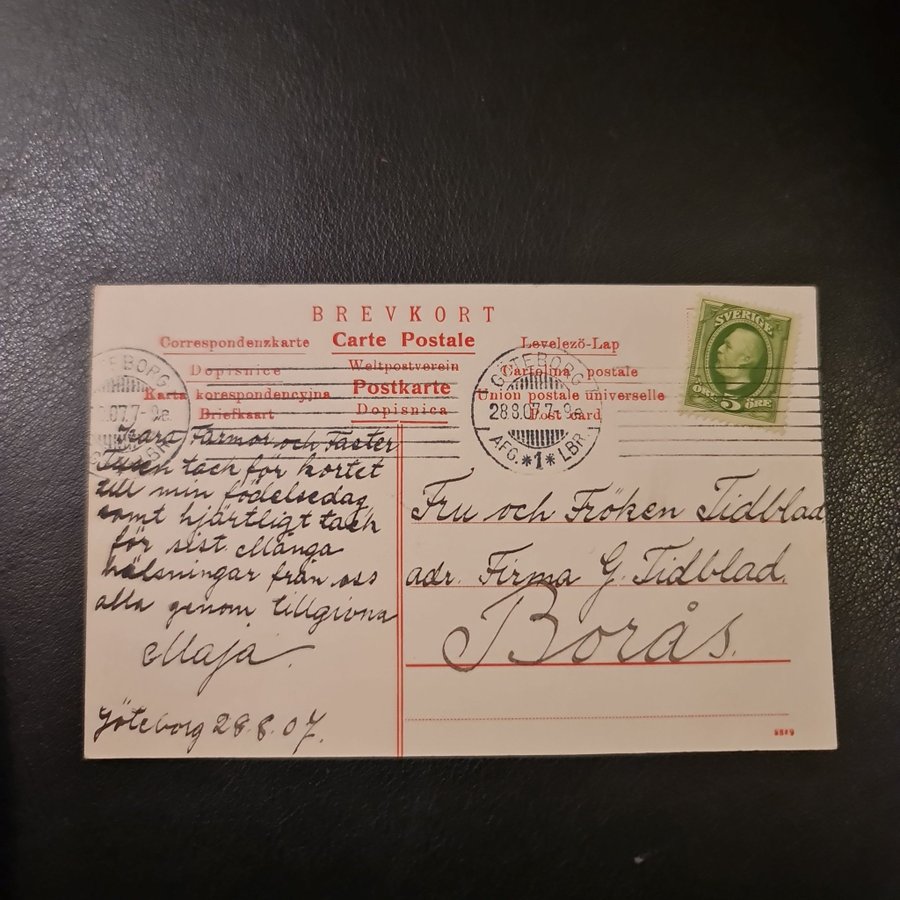 BREVKORT
Correspondenzkarte Carte Postale Levelező-Lap
Dopisnice Weltpostverein Cartolina postale
Karta korespondencyjna Postkarte Union postale universelle
Briefkaart Dopisnica Post card
SVERIGE
ÖRE 5 ÖRE
GÖTEBORG
28.8.07.7-9a.
AFG. *1* LBR.
Kära Farmor och Faster
Tusen tack för kortet
till min födelsedag
samt hjärtligt tack
för sist. Många
hälsningar från oss
alla genom tillgivna
Maja.
Göteborg 28.8.07.
Fru och Fröken Tidblad
adr. Firma G. Tidblad.
Borås.